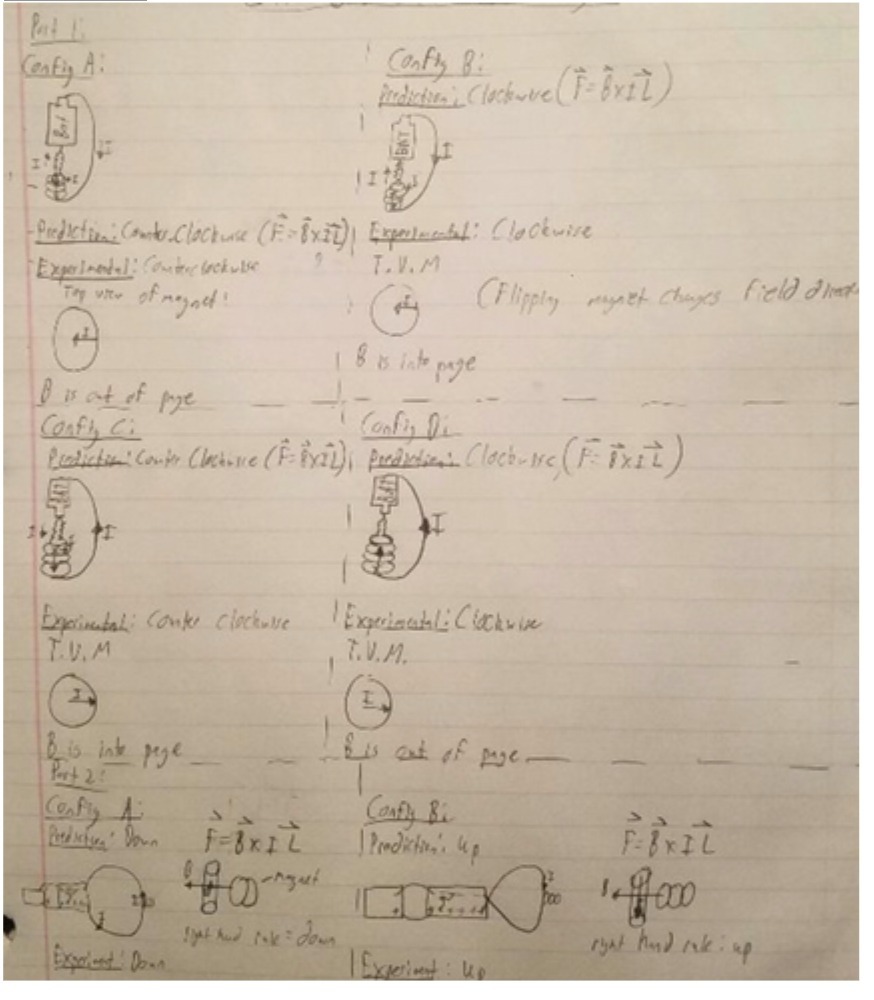 Part 1:
Config A:
BAT
I
I
I
Prediction: Counter Clockwise (F = B x I L)
Experimental: Counterclockwise
Top view of magnet:
I
B is out of page
Config B:
Prediction: Clockwise (F = B x I L)
BAT
I
I
Experimental: Clockwise
T.V.M
I
(Flipping magnet changes field
B is into page
Config C:
Prediction: Counter Clockwise (F = B x I L)
BAT
I
I
Experimental: Counter clockwise
T.V.M
I
B is into page
Config D:
Prediction: Clockwise, (F = B x I L)
BAT
I
Experimental: Clockwise
T.V.M.
I
B is out of page
Part 2:
Config A:
Prediction: Down
F = B x I L
B
magnet
I
right hand rule = down
Experiment: Down
Config B:
Prediction: Up
F = B x I L
I
B
right hand rule: up
Experiment: Up